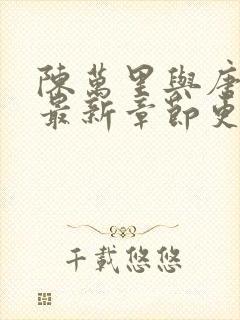 陳萬里與唐
最新章節更
千載悠悠